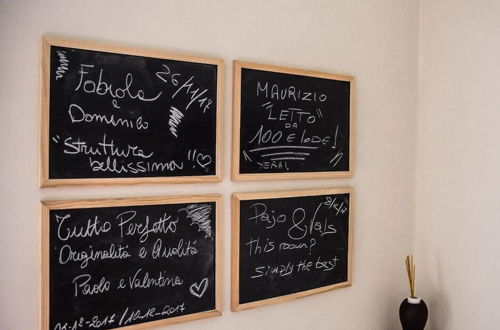 Fabiola
26/11/17
e
Domenico
"Struttura
bellissima"!!
MAURIZIO
"LETTO"
DA
100 E lode!
Tutto Perfetto
Originalità e Qualità
Paolo e Valentina
-12-2017 / 10-12-2017
Pajo & Vals
this room?
simply the best